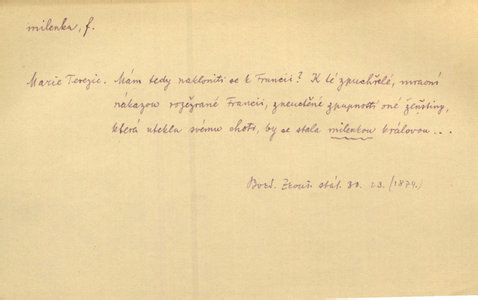 milenka, f.
Marie Terezie. Mám tedy nakloniti se k Francii? K té zpuchřelé, mravní
nákazou rozežrané Francii, zneuctěné zpupností oné ženštiny,
která utekla svému choti, by se stala milenkou královou...
Boz. Zkouš. stát. 30. I.3. (1874.)